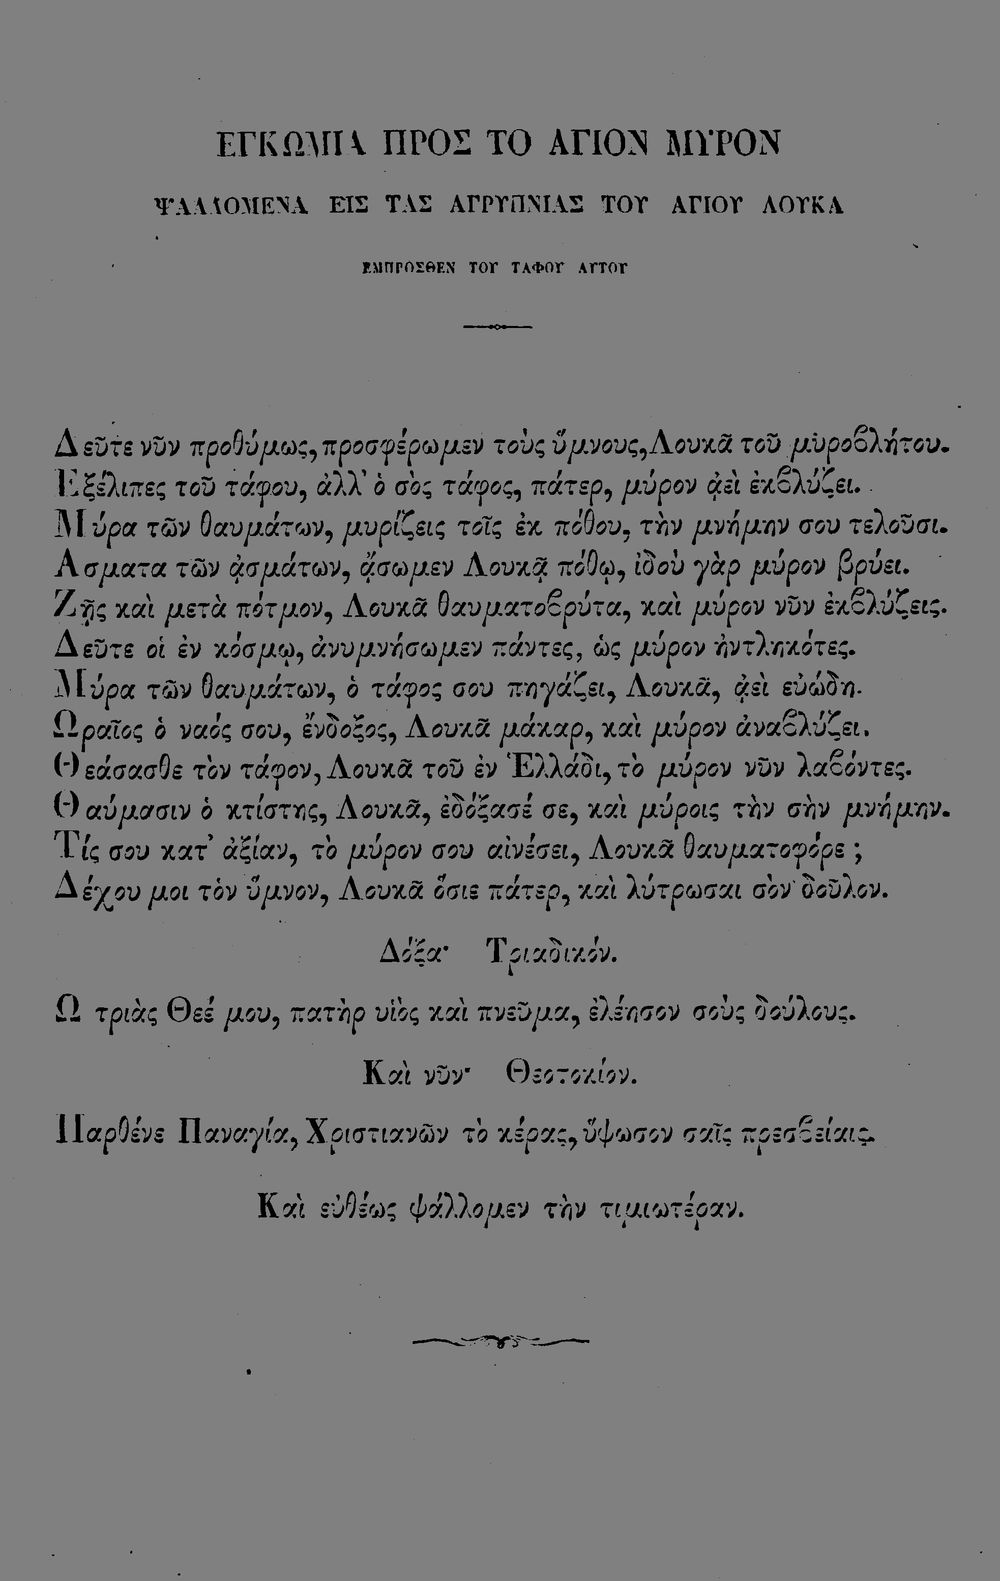 ΕΓΚΩΜΙΑ ΠΡΟΣ ΤΟ ΑΓΙΟΝ ΜΥΡΟΝ
ΨΑΛΛΟΜΕΝΑ ΕΙΣ ΤΑΣ ΑΓΡΥΠΝΙΑΣ ΤΟΥ ΑΓΙΟΥ ΛΟΥΚΑ
ΕΜΠΡΟΣΘΕΝ ΤΟΥ ΤΑΦΟΥ ΑΥΤΟΥ
Δεῦτε νῦν προθύμως, προσφέρωμεν τοὺς ὕμνους, Λουκᾶ τοῦ μυροβλήτου.
Εξέλιπες τοῦ τάφου, ἀλλ' ὁ σὸς τάφος, πάτερ, μύρον ᾀεὶ ἐκβλύζει.
Μύρα τῶν θαυμάτων, μυρίζεις τοῖς ἐκ πόθου, τὴν μνήμην σου τελοῦσι.
Ασματα τῶν ᾀσμάτων, ᾄσωμεν Λουκᾷ πόθῳ, ἰδοὺ γὰρ μύρον βρύει.
Ζῇς καὶ μετὰ πότμον, Λουκᾶ θαυματοβρύτα, καὶ μύρον νῦν ἐκβλύζεις.
Δεῦτε οἱ ἐν κόσμῳ, ἀνυμνήσωμεν πάντες, ὡς μύρον ἠντληκότες.
Μύρα τῶν θαυμάτων, ὁ τάφος σου πηγάζει, Λουκᾶ, ᾀεὶ εὐώδη.
Ωραῖος ὁ ναός σου, ἔνδοξος, Λουκᾶ μάκαρ, καὶ μύρον ἀναβλύζει.
Θεάσασθε τὸν τάφον, Λουκᾶ τοῦ ἐν Ἑλλάδι, τὸ μύρον νῦν λαβόντες.
Θαύμασιν ὁ κτίστης, Λουκᾶ, ἐδόξασέ σε, καὶ μύροις τὴν σὴν μνήμην.
Τίς σου κατ' ἀξίαν, τὸ μύρον σου αἰνέσει, Λουκᾶ θαυματοφόρε ;
Δέχου μοι τὸν ὕμνον, Λουκᾶ ὅσιε πάτερ, καὶ λύτρωσαι σὸν δοῦλον.
Δόξα· Τριαδικόν.
Ω τριὰς Θεέ μου, πατὴρ υἱὸς καὶ πνεῦμα, ἐλέησον σοὺς δούλους.
Καὶ νῦν· Θεοτοκίον.
Παρθένε Παναγία, Χριστιανῶν τὸ κέρας, ὕψωσον σαῖς πρεσβείαις.
Καὶ εὐθέως ψάλλομεν τὴν τιμιωτέραν.